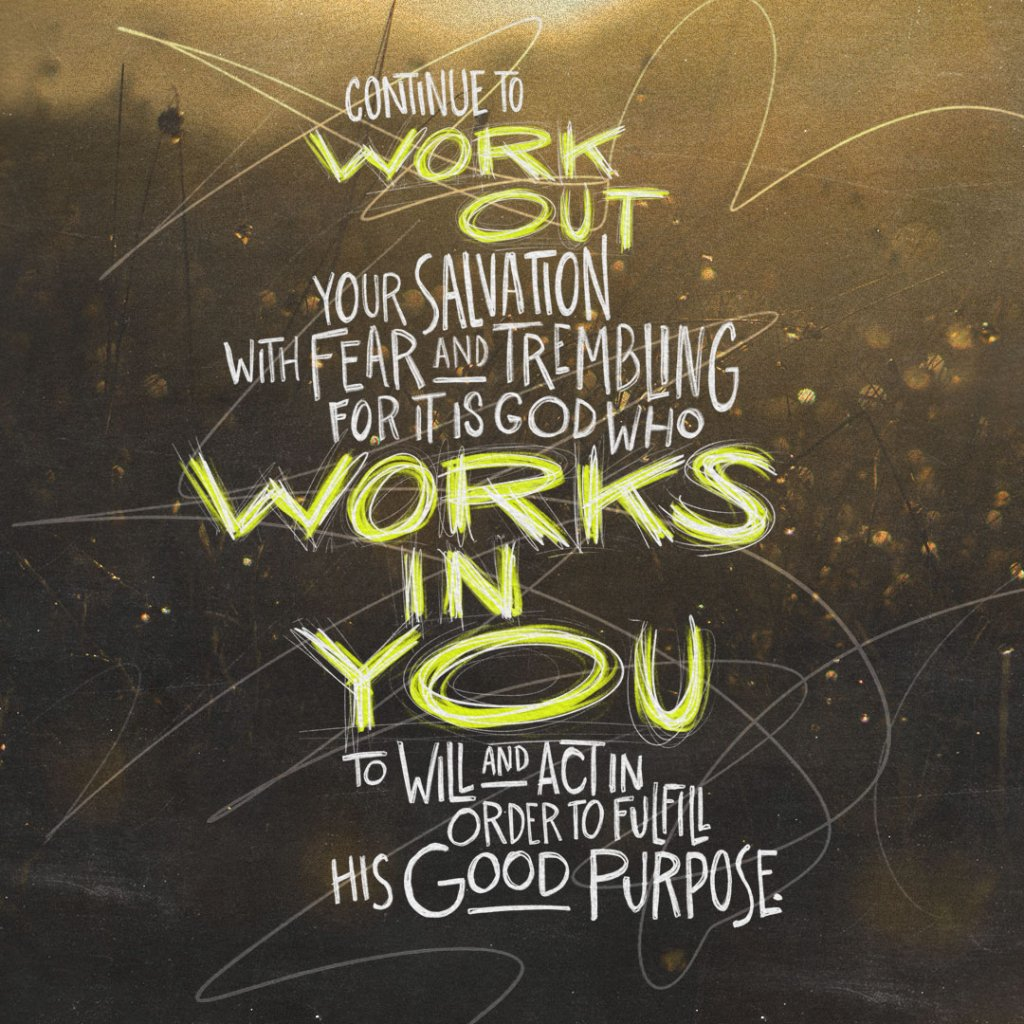 CONTINUE TO
WORK
OUT
YOUR SALVATION
WITH FEAR AND TREMBLING
FOR IT IS GOD WHO
WORKS
IN
YOU
TO WILL AND ACT IN
ORDER TO FULFILL
HIS GOOD PURPOSE.